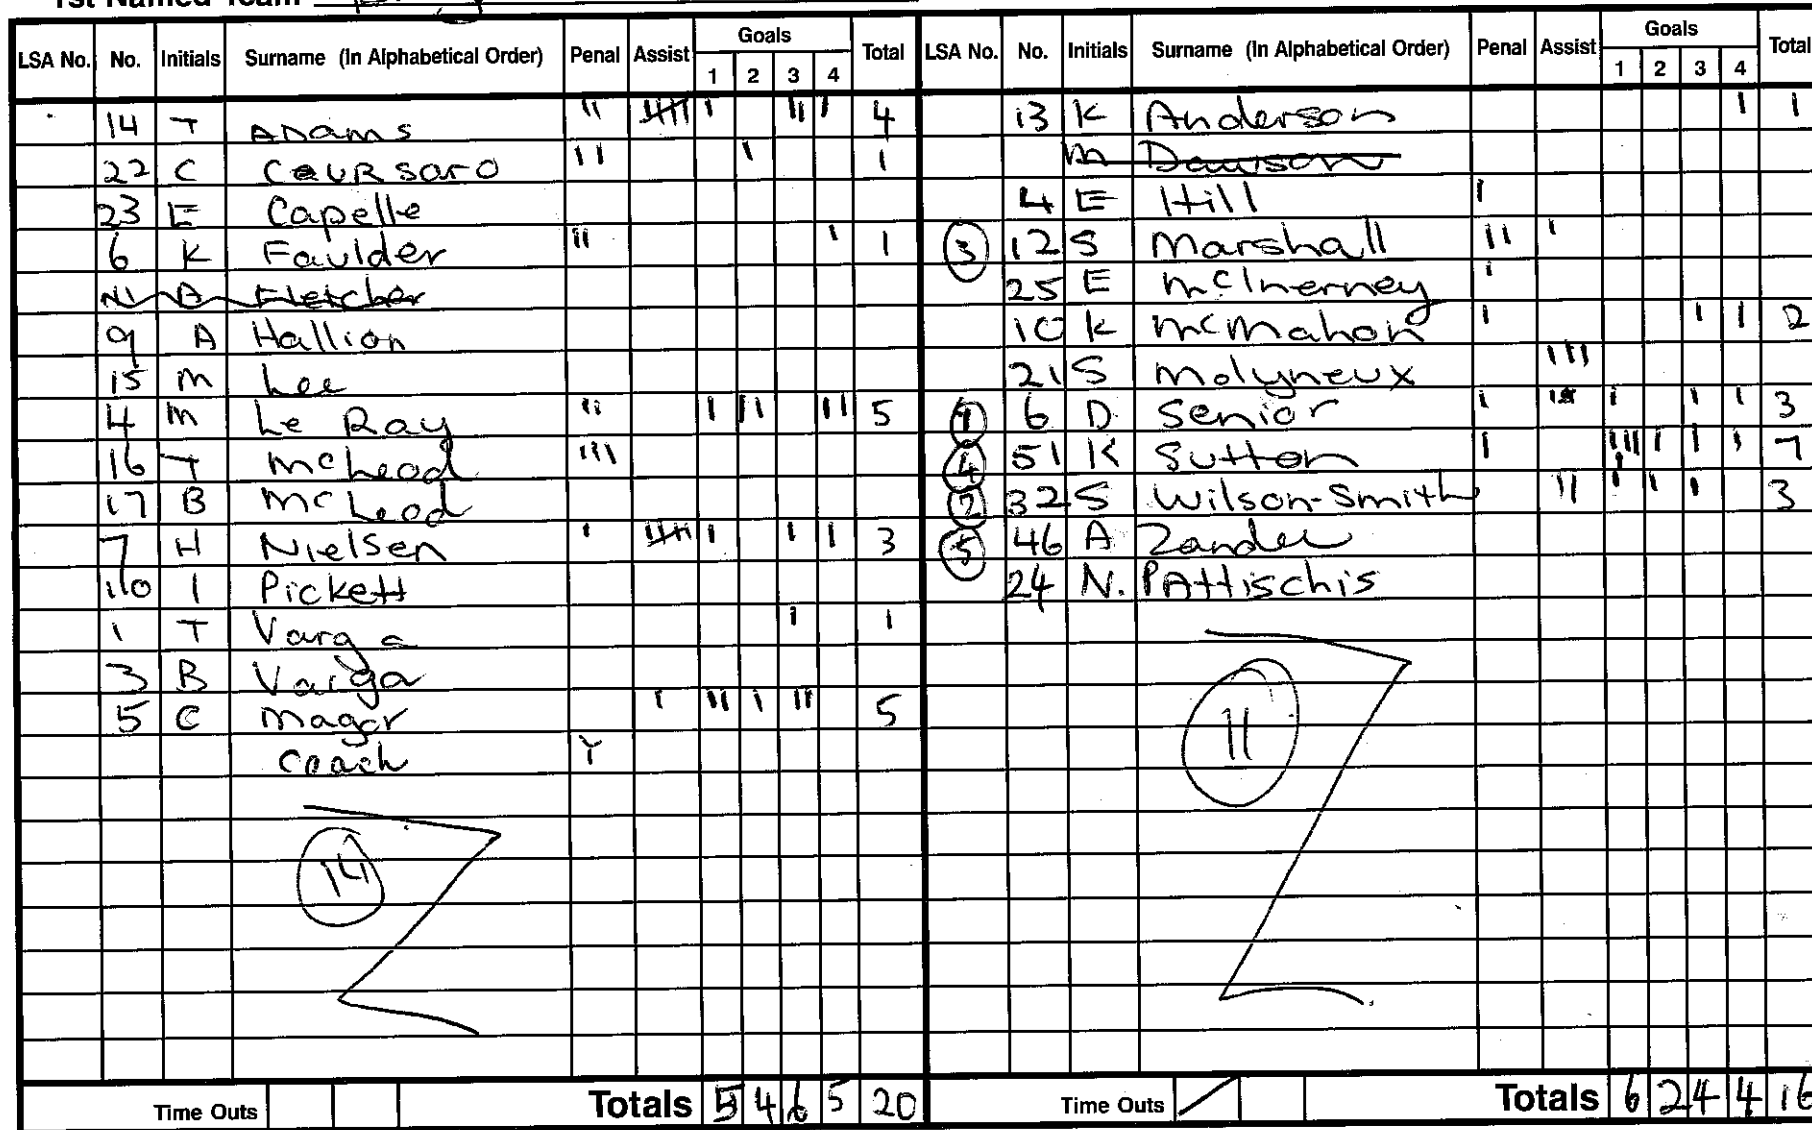 1st Named Team
LSA No. No. Initials Surname (In Alphabetical Order) Penal Assist Goals 1 2 3 4 Total
14 T Adams II IIII I II I 4
22 C II I 1
23 E Capelle
6 K Faulder II I 1
A Fletcher
9 A Hallion
15 M Lee
4 M Le Ray II I II II 5
16 T McLeod III
17 B McLeod
7 H Nielsen I IIII I I I 3
110 I Pickett
1 T Varga I 1
3 B Varga
5 C Mager I II I II 5
Coach Y
14
Time Outs Totals 5 4 6 5 20
LSA No. No. Initials Surname (In Alphabetical Order) Penal Assist Goals 1 2 3 4 Total
13 K Anderson I 1
M Dawson
4 E Hill I
3 12 S Marshall II I
25 E McInerney I
10 K McMahon I I I 2
21 S Molyneux III
1 6 D Senior I I I I 3
4 51 K Sutton I IIII I I I 7
2 32 S Wilson-Smith II I I I 3
5 46 A Zander
24 N. PAttischis
11
Time Outs / Totals 6 2 4 4 16